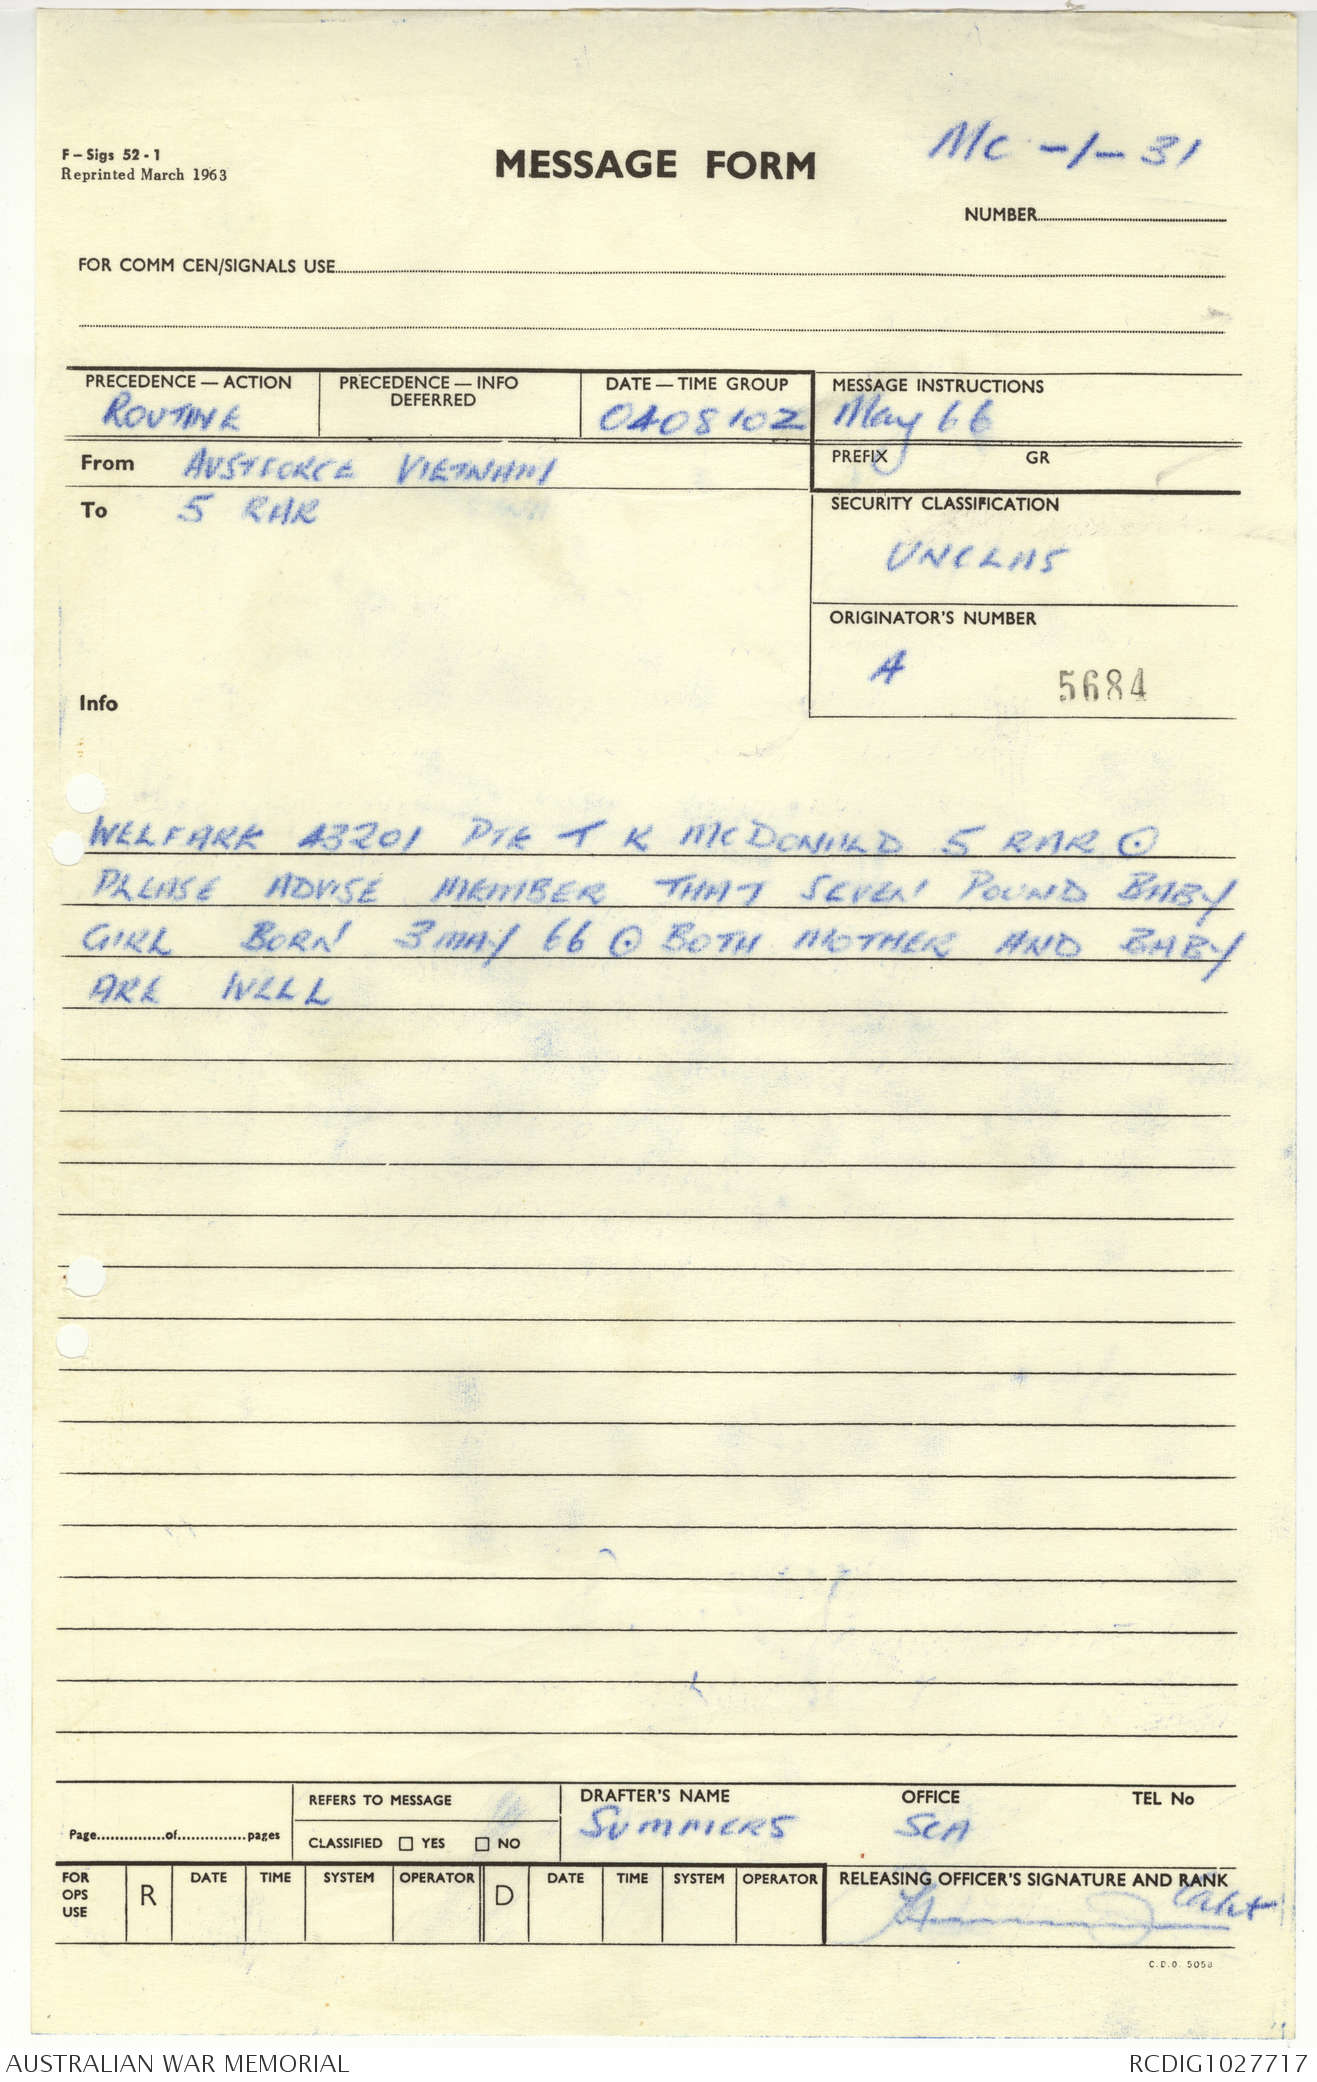 F – Sigs 52 - 1
Reprinted March 1963
MESSAGE FORM
Mc -1- 31
NUMBER
FOR COMM CEN/SIGNALS USE
PRECEDENCE — ACTION
ROUTINE
PRECEDENCE — INFO
DEFERRED
DATE — TIME GROUP
040810Z
MESSAGE INSTRUCTIONS
May 66
From AUSTFORCE VIETNAM
PREFIX GR
To 5 RAR
SECURITY CLASSIFICATION
UNCLAS
ORIGINATOR'S NUMBER
A 5684
Info
WELFARE 43201 PTE T K McDONALD 5 RAR ⊙
PLEASE ADVISE MEMBER THAT SEVEN POUND BABY
GIRL BORN 3 MAY 66 ⊙ BOTH MOTHER AND BABY
ARE WELL
Page...............of...............pages
REFERS TO MESSAGE
CLASSIFIED ☐ YES ☐ NO
DRAFTER'S NAME OFFICE TEL No
SUMMERS SCA
FOR
OPS
USE
R DATE TIME SYSTEM OPERATOR D DATE TIME SYSTEM OPERATOR
RELEASING OFFICER'S SIGNATURE AND RANK
Capt
C.D.O. 5058
AUSTRALIAN WAR MEMORIAL RCDIG1027717